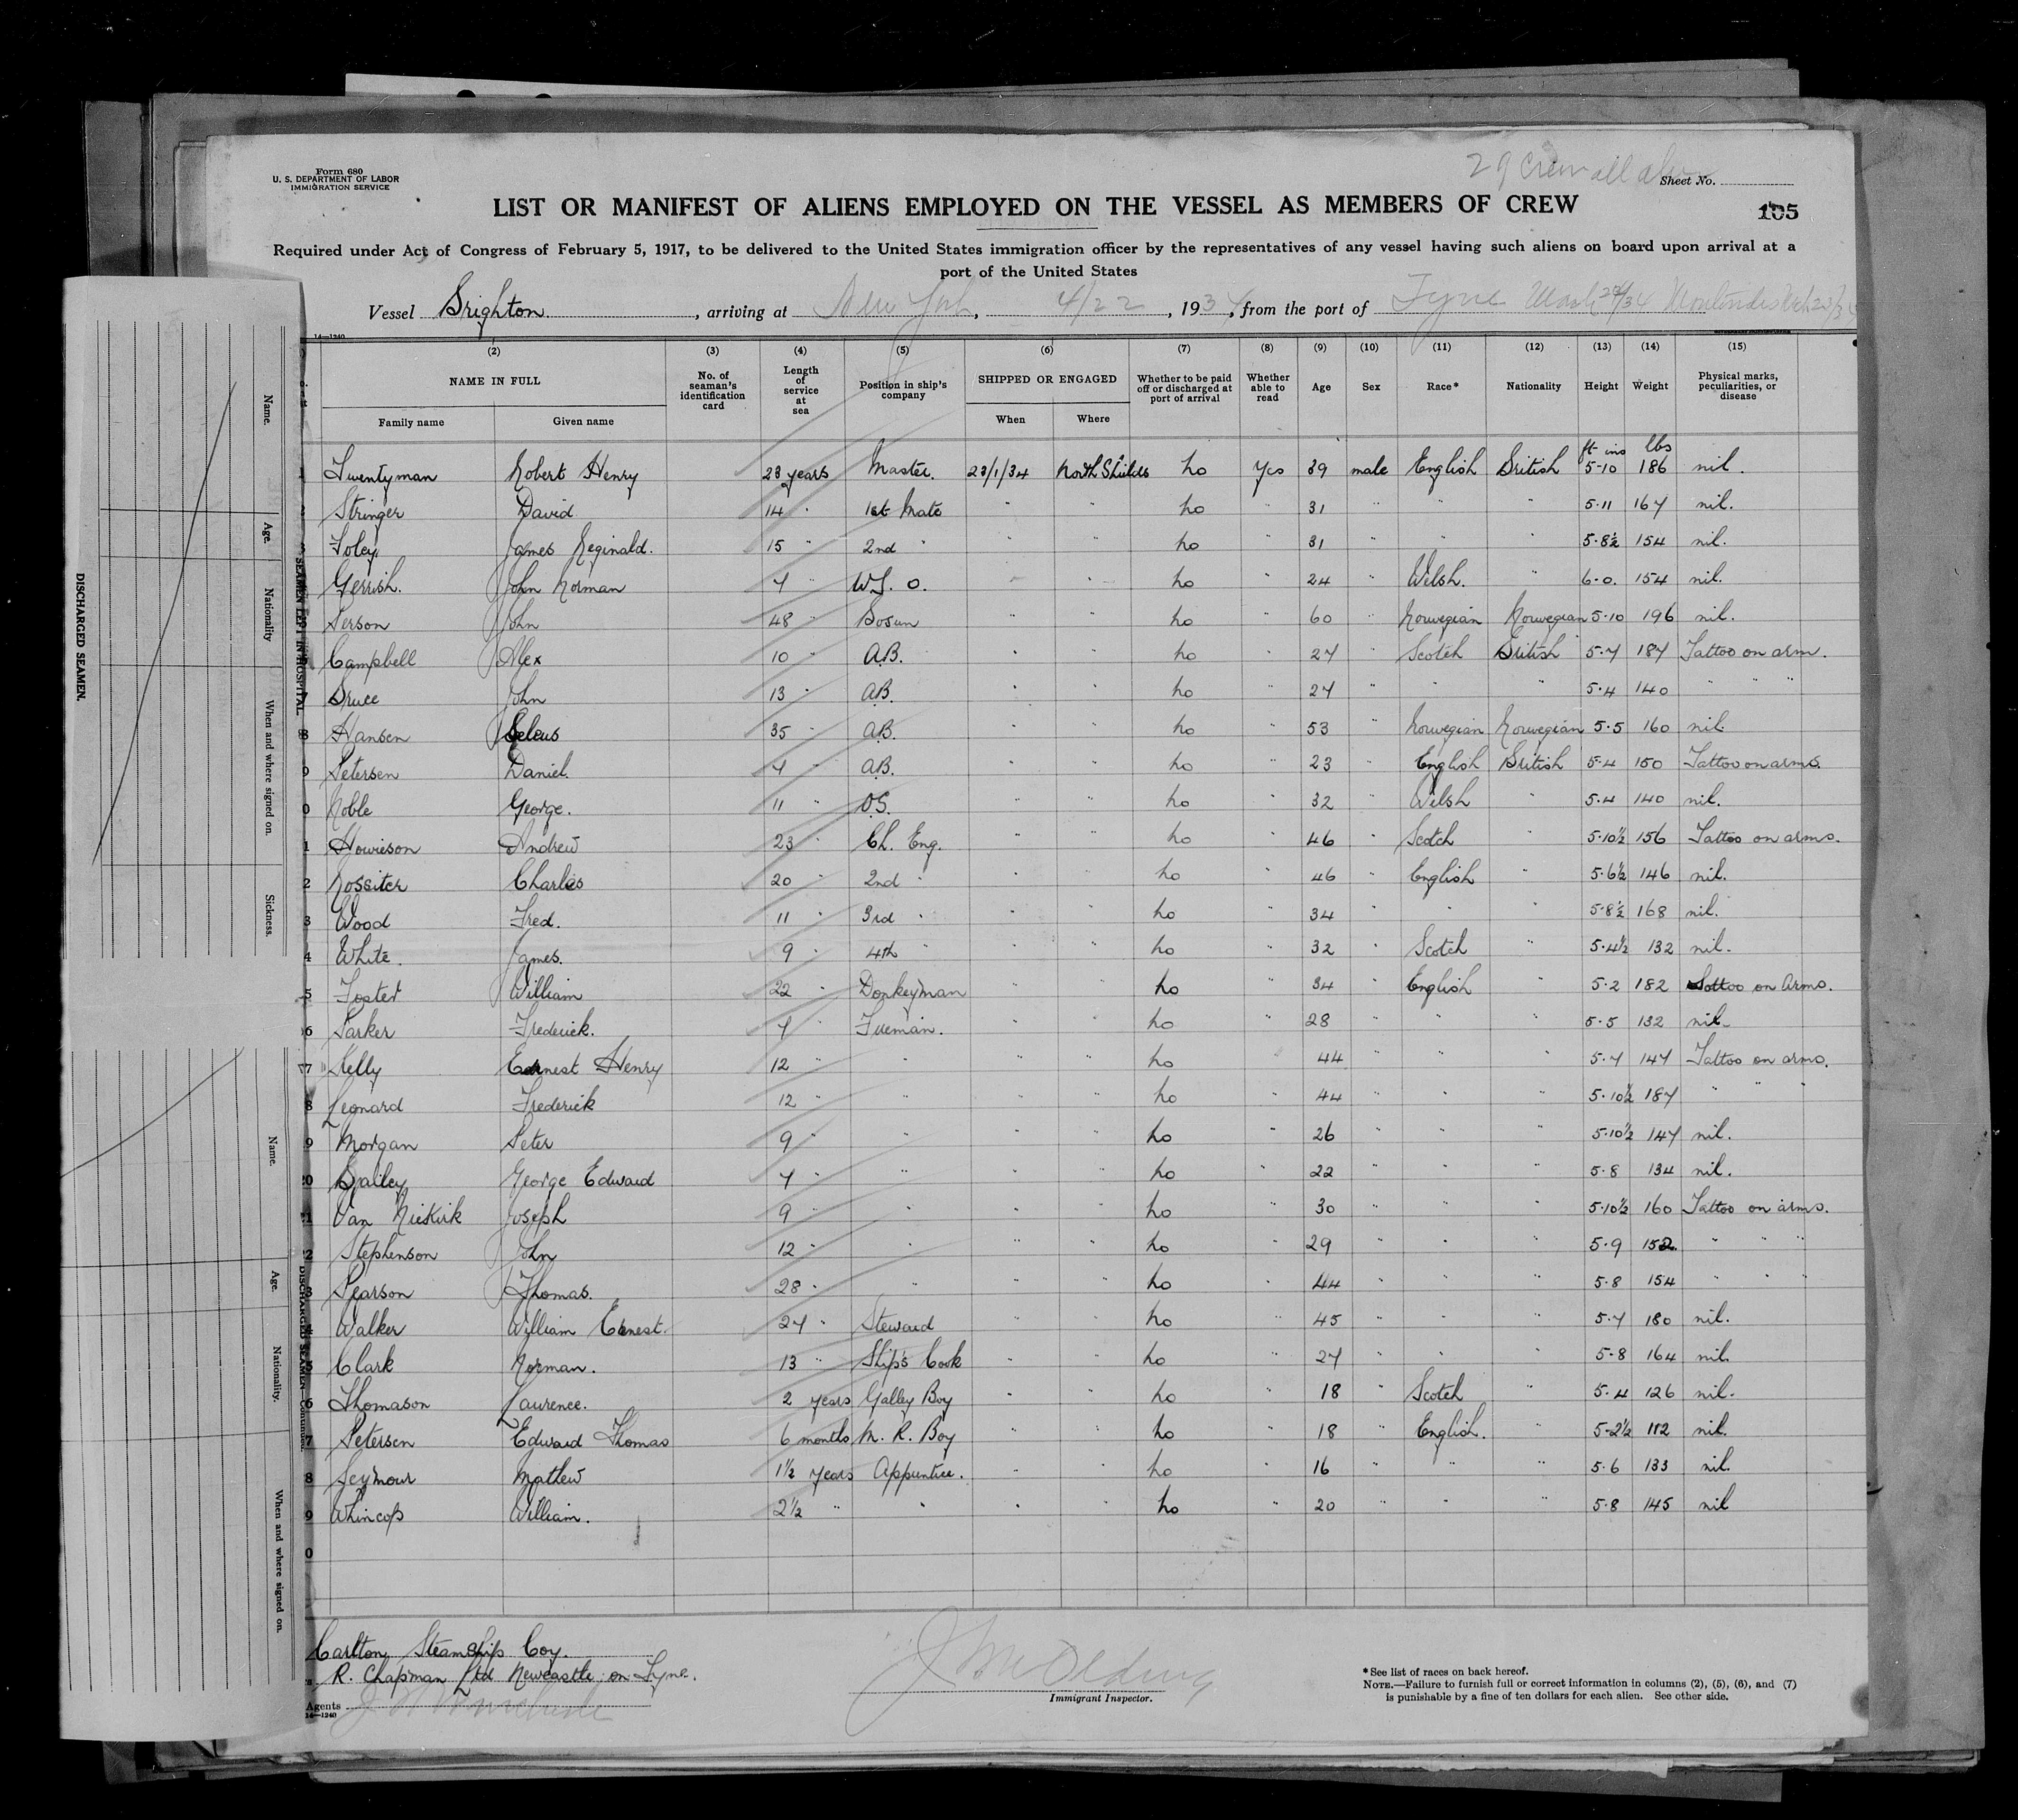 29 crew all alien
Form 680
U. S. DEPARTMENT OF LABOR
IMMIGRATION SERVICE
Sheet No.
LIST OR MANIFEST OF ALIENS EMPLOYED ON THE VESSEL AS MEMBERS OF CREW
105
Required under Act of Congress of February 5, 1917, to be delivered to the United States immigration officer by the representatives of any vessel having such aliens on board upon arrival at a
port of the United States
Vessel Brighton, arriving at New York, 4/22, 1934, from the port of Tyne
14—1240
(2) (3) (4) (5) (6) (7) (8) (9) (10) (11) (12) (13) (14) (15)
NAME IN FULL No. of seaman's identification card Length of service at sea Position in ship's company SHIPPED OR ENGAGED Whether to be paid off or discharged at port of arrival Whether able to read Age Sex Race* Nationality Height Weight Physical marks, peculiarities, or disease
Family name Given name When Where
ft ins lbs
1 Twentyman Robert Henry 23 years Master. 23/1/34 North Shields No Yes 39 male English British 5-10 186 nil.
Stringer David 14 " 1st Mate " " No " 31 " " " 5-11 167 nil.
Foley James Reginald. 15 " 2nd " " " No " 31 " " " 5-8½ 154 nil.
Gerrish. John Norman 7 " W.T. O. " " No " 24 " Welsh. " 6-0. 154 nil.
Person John 48 " Bosun " " No " 60 " Norwegian Norwegian 5-10 196 nil.
Campbell Alex 10 " A.B. " " No " 27 " Scotch British 5-7 187 Tattoo on arm.
7 Bruce John 13 " A.B. " " No " 27 " " " 5-4 140 " " "
8 Hansen 35 " A.B. " " No " 53 " Norwegian Norwegian 5-5 160 nil
9 Petersen Daniel. 7 " A.B. " " No " 23 " English British 5-4 150 Tattoo on arms.
0 Noble George. 11 " O.S. " " No " 32 " Welsh " 5-4 140 nil.
1 Howieson Andrew 23 " Ch. Eng. " " No " 46 " Scotch " 5-10½ 156 Tattoo on arms.
2 Rossiter Charles 20 " 2nd " " " No " 46 " English " 5-6½ 146 nil.
3 Wood Fred. 11 " 3rd " " " No " 34 " " " 5-8½ 168 nil.
4 White. James. 9 " 4th " " " No " 32 " Scotch " 5-4½ 132 nil.
5 Foster William 22 " Donkeyman " " No " 34 " English " 5-2 182 Tattoo on Arms.
6 Parker Frederick. 7 " Fireman. " " No " 28 " " " 5-5 132 nil
7 Kelly Ernest Henry 12 " " " " No " 44 " " " 5-7 147 Tattoo on arms.
8 Leonard Frederick 12 " " " " No " 44 " " " 5-10½ 187 " " "
9 Morgan Peter 9 " " " " No " 26 " " " 5-10½ 147 nil.
20 Bailey George Edward 7 " " " " No " 22 " " " 5-8 134 nil.
1 Van Niekirk Joseph 9 " " " " No " 30 " " " 5-10½ 160 Tattoo on arms.
2 Stephenson John 12 " " " " No " 29 " " " 5-9 152 " " "
3 Pearson Thomas. 28 " " " " No " 44 " " " 5-8 154 " " "
4 Walker William Ernest. 27 " Steward " " No " 45 " " " 5-7 180 nil.
5 Clark Norman. 13 " Ship's Cook " " No " 27 " " " 5-8 164 nil.
6 Thomason Laurence. 2 years Galley Boy " " No " 18 " Scotch " 5-4 126 nil.
7 Petersen Edward Thomas 6 months M. R. Boy " " No " 18 " English. " 5-2½ 112 nil.
8 Seymour Mathew 1½ years Apprentice. " " No " 16 " " " 5-6 133 nil.
9 Whincop William. 2½ " " " " No " 20 " " " 5-8 145 nil
0
Carlton Steamship Coy.
R. Chapman Ltd Newcastle on Tyne.
Agents
14—1240
Immigrant Inspector.
*See list of races on back hereof.
NOTE.—Failure to furnish full or correct information in columns (2), (5), (6), and (7)
is punishable by a fine of ten dollars for each alien. See other side.
DISCHARGED SEAMEN.
Name.
Age.
Nationality
When and where signed on.
Sickness.
SEAMEN LEFT IN HOSPITAL
Name.
Age.
Nationality.
When and where signed on.
DISCHARGED SEAMEN—Continued.